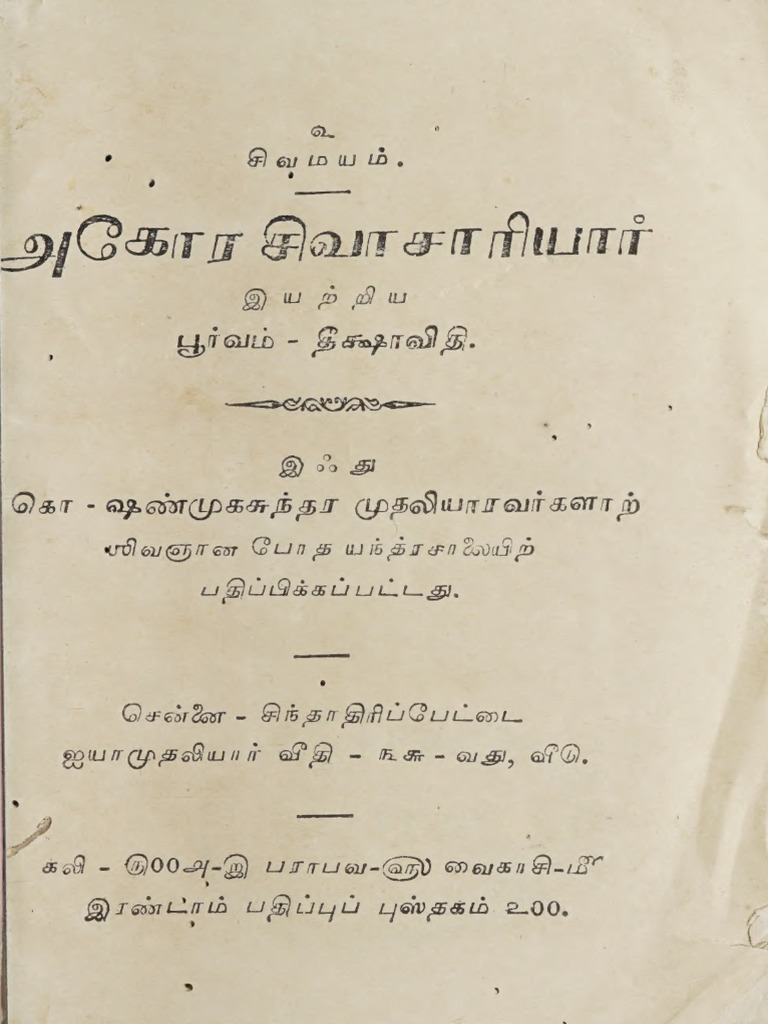 உ
சிவமயம்.
அகோர சிவாசாரியார்
இயற்றிய
பூர்வம் - தீக்ஷாவிதி.
இஃது
கொ - ஷண்முகசுந்தர முதலியாரவர்களாற்
ஶிவஞான போத யந்த்ரசாலையிற்
பதிப்பிக்கப்பட்டது.
சென்னை - சிந்தாதிரிப்பேட்டை
ஐயாமுதலியார் வீதி - ௩௬ - வது, வீடு.
கலி - ௫00௮-இ பராபவ-௵ வைகாசி-௴
இரண்டாம் பதிப்புப் புஸ்தகம் ௨00.